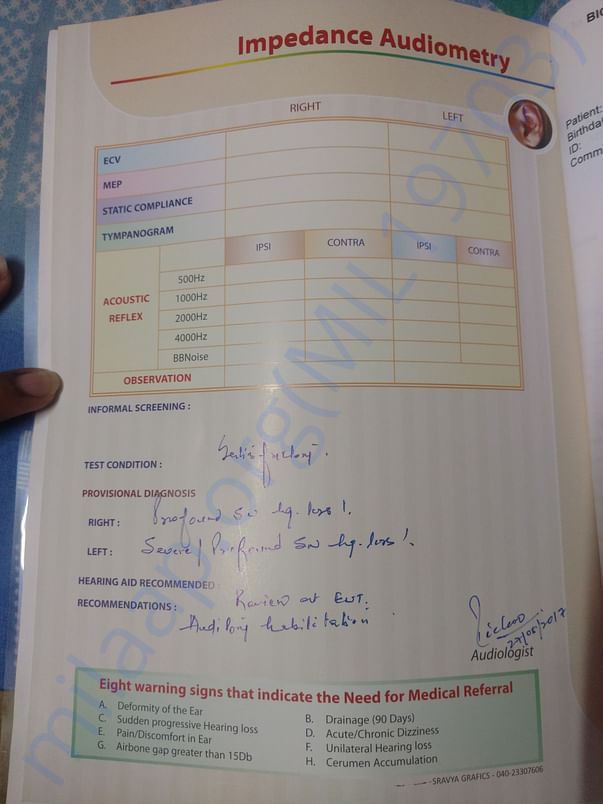 Impedance Audiometry
RIGHT LEFT
ECV
MEP
STATIC COMPLIANCE
TYMPANOGRAM
IPSI CONTRA IPSI CONTRA
ACOUSTIC REFLEX
500Hz
1000Hz
2000Hz
4000Hz
BBNoise
OBSERVATION
INFORMAL SCREENING :
TEST CONDITION : Satisfactory.
PROVISIONAL DIAGNOSIS
RIGHT : Profound SN hg. loss!.
LEFT : Severe/Profound SN hg. loss!.
HEARING AID RECOMMENDED :
RECOMMENDATIONS : Review at ENT.
Auditory habilitation
27/05/2017
Audiologist
Eight warning signs that indicate the Need for Medical Referral
A. Deformity of the Ear
B. Drainage (90 Days)
C. Sudden progressive Hearing loss
D. Acute/Chronic Dizziness
E. Pain/Discomfort in Ear
F. Unilateral Hearing loss
G. Airbone gap greater than 15Db
H. Cerumen Accumulation
SRAVYA GRAFICS - 040-23307606
Patient:
ID:
milaap.org(MIL197083)